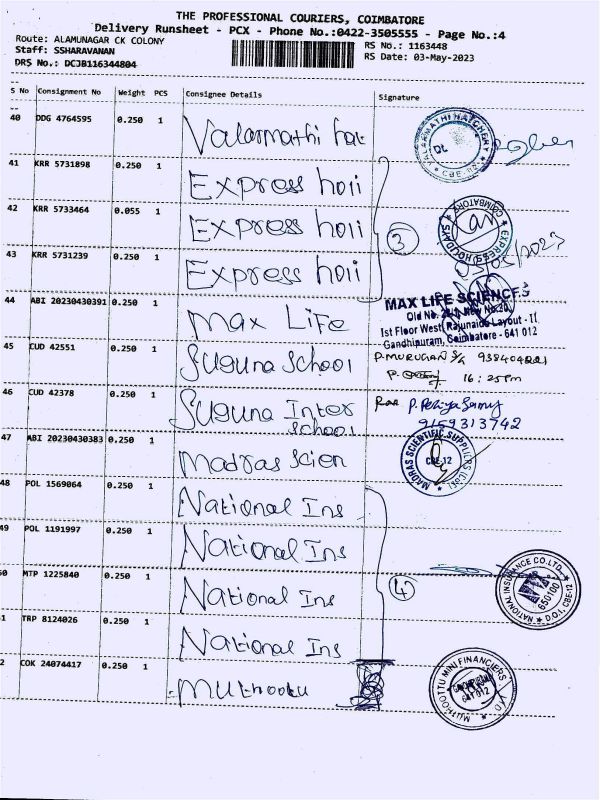 THE PROFESSIONAL COURIERS, COIMBATORE
Delivery Runsheet - PCX - Phone No.:0422-3505555 - Page No.:4
Route: ALAMUNAGAR CK COLONY
RS No.: 1163448
Staff: SSHARAVANAN
RS Date: 03-May-2023
DRS No.: DCJB116344804
S No Consignment No Weight PCS Consignee Details Signature
40 DDG 4764595 0.250 1 Valarmathi hat
VALARMATHI HATCHERY CBE-
41 KRR 5731898 0.250 1 Express holi
42 KRR 5733464 0.055 1 Express holi
3
EXPRESS HOLIDAYS COIMBATORE
03/05/2023
43 KRR 5731239 0.250 1 Express holi
44 ABI 20230430391 0.250 1 Max Life
MAX LIFE SCIENCES
Old No. New No.20,
1st Floor West Rajunaidu Layout - II,
Gandhipuram, Coimbatore - 641 012
45 CUD 42551 0.250 1 Suguna School
P.MURUGAN
16:25pm
46 CUD 42378 0.250 1 Suguna Inter
school
9159313742
47 ABI 20230430383 0.250 1 Madras Scien
MADRAS SCIENTIFIC SUPPLIERS CBE-12
48 POL 1569064 0.250 1 National Ins
49 POL 1191997 0.250 1 National Ins
50 MTP 1225840 0.250 1 National Ins
4
NATIONAL INSURANCE CO.LTD. D.O.I, CBE-12
650100
51 TRP 8124026 0.250 1 National Ins
52 COK 24074417 0.250 1 Muthoottu
MUTHOOTTU MINI FINANCIERS
641 012